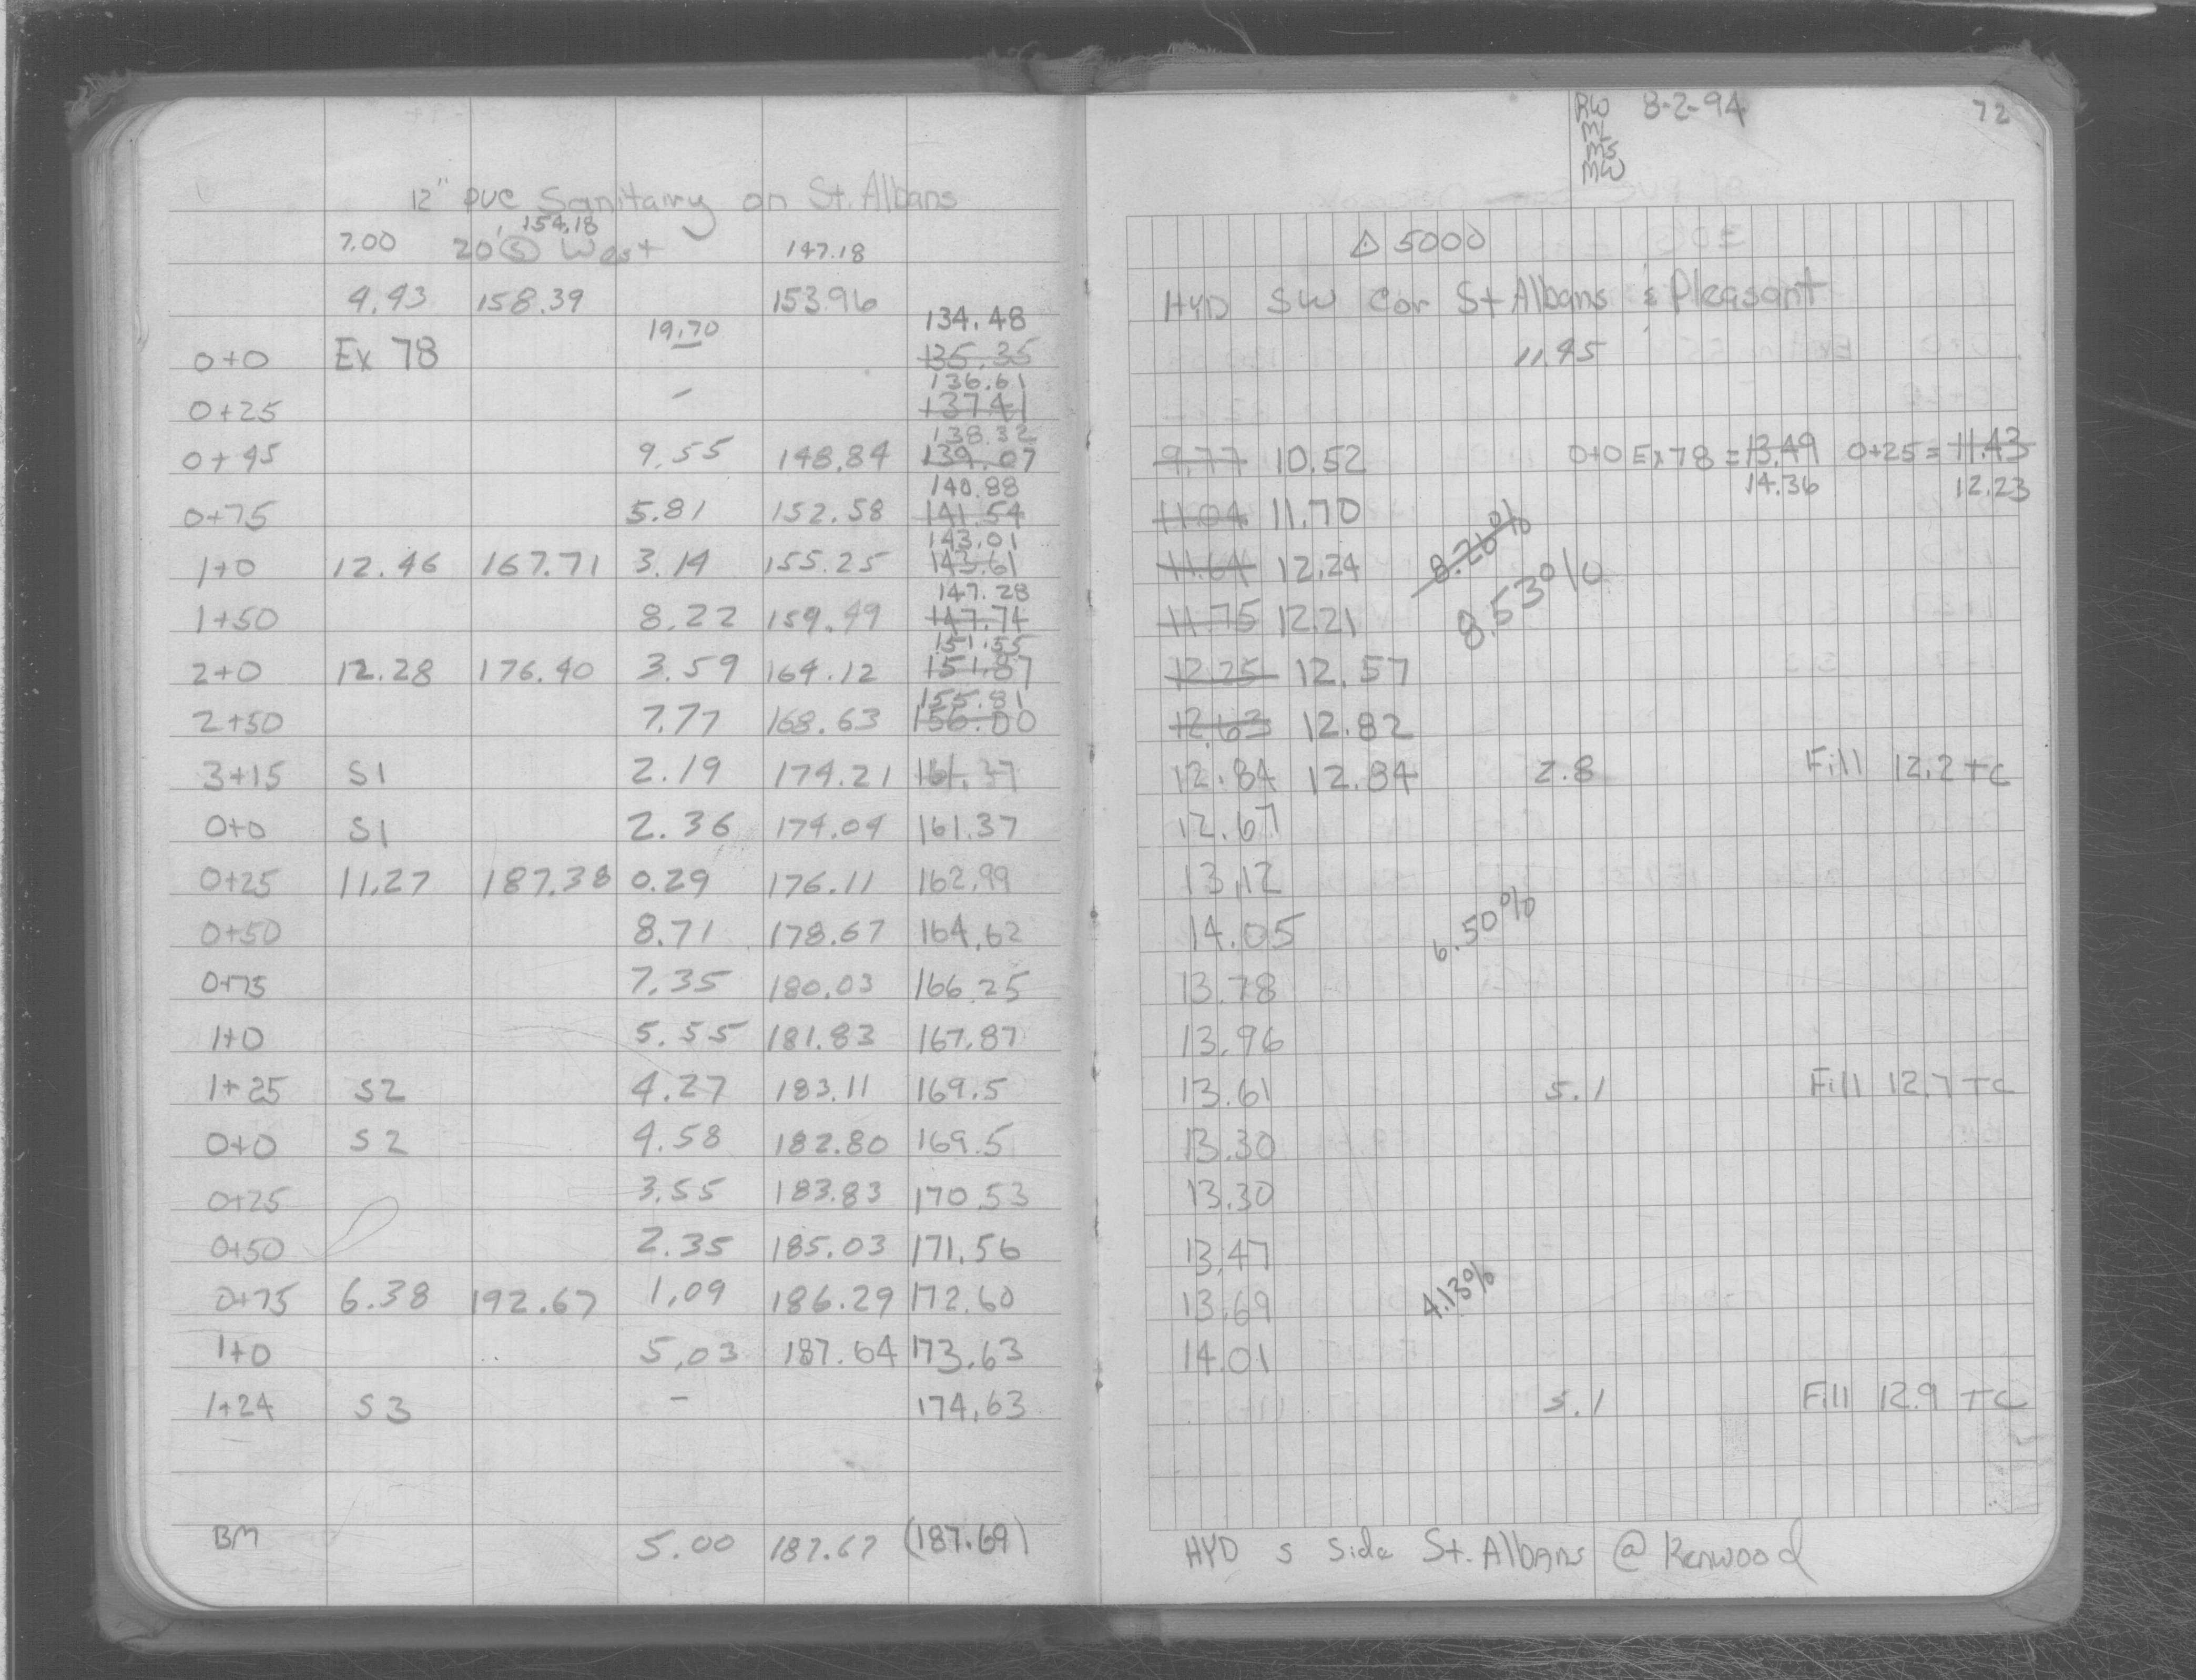 RW 8-2-94 72
ML
MS
MW
12" PVC Sanitary on St. Albans
7.00 154.18 147.18 △ 5000
20' Ⓢ West
4.43 158.39 153.96 HYD SW Cor St Albans & Pleasant
19.70 134.48
0+0 Ex 78 135.35 11.45
136.61
0+25 - 137.41
138.32
0+45 9.55 148.84 139.07 9.77 10.52 0+0 Ex 78 = 13.49 0+25 = 11.43
140.88 14.36 12.23
0+75 5.81 152.58 141.54 11.04 11.70
143.01
1+0 12.46 167.71 3.14 155.25 143.61 11.64 12.24 8.26%
147.28 8.53%
1+50 8.22 159.49 147.74 11.75 12.21
151.55
2+0 12.28 176.40 3.59 164.12 151.87 12.25 12.57
155.81
2+50 7.77 168.63 156.00 12.63 12.82
3+15 S1 2.19 174.21 161.37 12.84 12.84 2.8 Fill 12.2 TC
0+0 S1 2.36 174.04 161.37 12.67
0+25 11.27 187.38 0.29 176.11 162.99 13.12
0+50 8.71 178.67 164.62 14.05 6.50%
0+75 7.35 180.03 166.25 13.78
1+0 5.55 181.83 167.87 13.96
1+25 S2 4.27 183.11 169.5 13.61 5.1 Fill 12.7 TC
0+0 S2 4.58 182.80 169.5 13.30
0+25 3.55 183.83 170.53 13.30
0+50 2.35 185.03 171.56 13.47
0+75 6.38 192.67 1.09 186.29 172.60 13.69 4.13%
1+0 5.03 187.64 173.63 14.01
1+24 S3 - 174.63 5.1 Fill 12.9 TC
BM 5.00 187.67 (187.69) HYD S Side St. Albans @ Kenwood